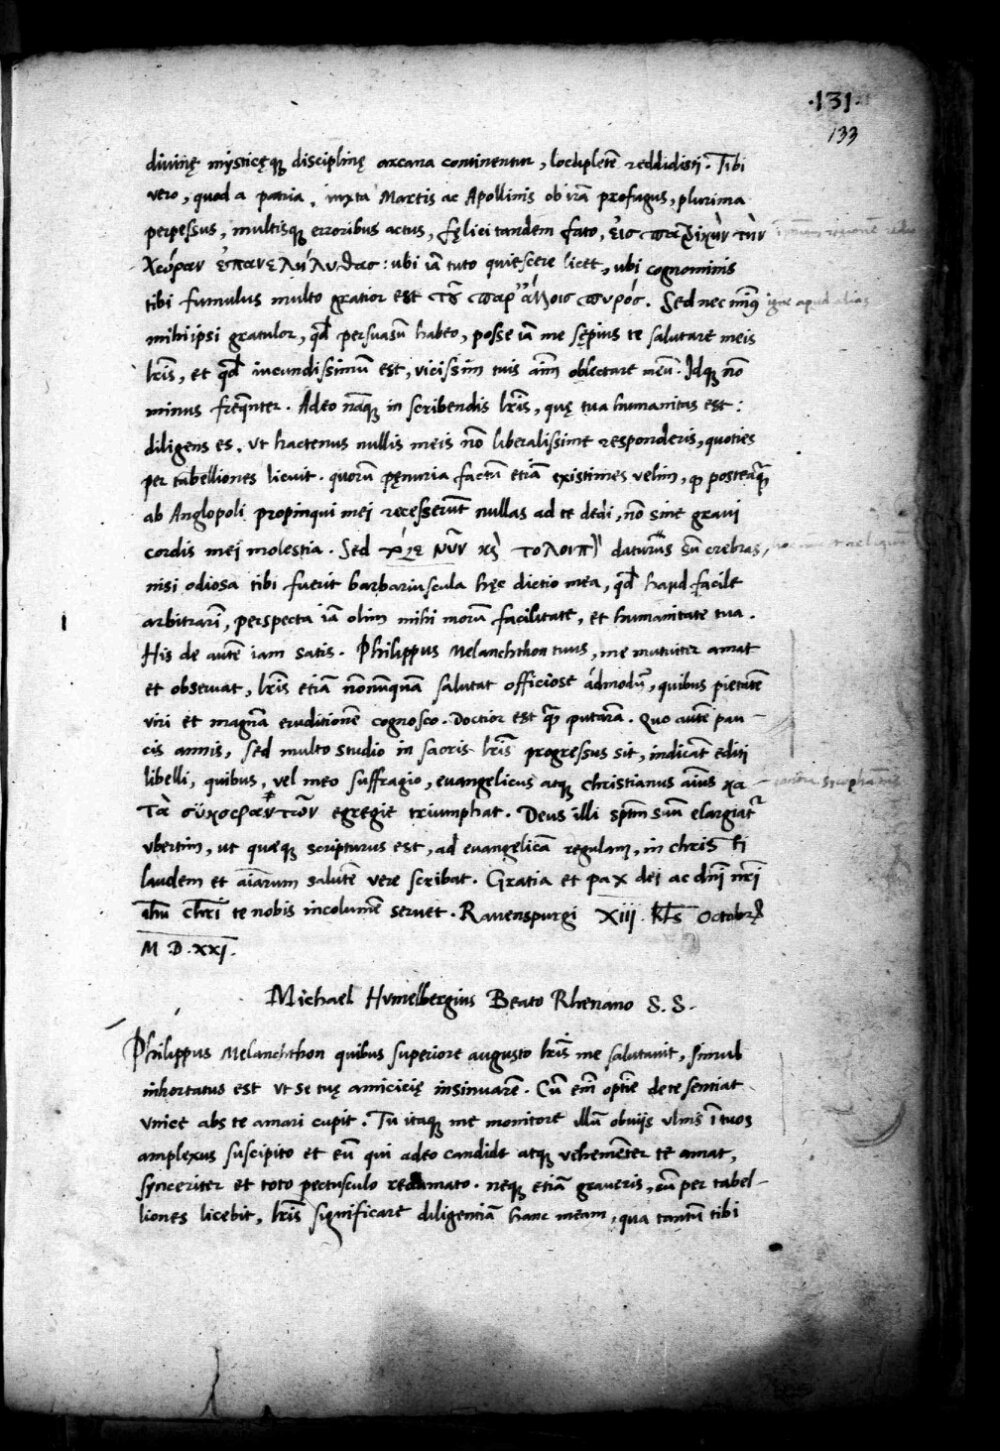 ·131·
133
diuinę mysticęq; disciplinę arcana continentur, locupletẽ reddidisti. Tibi
vero, quod a patria, iuxta Martis ac Apollinis ob irã profugus, plurima
perpessus, multisq; erroribus actus, fęlici tandem fato, εἰς πατρικὴν τὴν
χώραν ἐπανελήλυθας: ubi iã tuto quiescere licet, ubi cognominis
tibi fumulus multo gratior est τοῦ παρ' ἄλλοις πυρός. Sed nec min9 igne apud alias
mihi ipsi gratulor, qd persuasũ habeo, posse iã me sępius te salutare meis
lrĩs, et qd iucundissimũ est, vicissim tuis aĩm oblectare meũ. Idq; nõ
minus freq̃nter. Adeo nãq; in scribendis lrĩs, quę tua humanitas est:
diligens es, ut hactenus nullis meis nõ liberalissime responderis, quoties
per tabelliones licuit. quorũ pęnuria factũ etiã existimes velim, ꝙ posteaq̃
ab Anglopoli propinqui mei recesserunt nullas ad te dedi, nõ sine graui
cordis mei molestia. Sed νῦν κỳ τολοιπὸν daturus sũ crebras,
nisi odiosa tibi fuerit barbariuscula hęc dictio mea, qd haud facile
arbitrarĩ, perspecta iã olim mihi morũ facilitate, et humanitate tua.
His de autẽ iam satis. Philippus Melanchthon tuus, me mutuiter amat
et obseruat, lrĩs etiã nonnunquã salutat officiose admodũ, quibus pietatẽ
viri et magnã eruditionẽ cognosco. Doctior est q̃ putarã. Quo autẽ pau-
cis annis, sed multo studio in sacris lrĩs progressus sit, indicãt editi
libelli, quibus, vel meo suffragio, euangelicus atq; christianus aĩus κα-
τὰ συκοφαντῶν egregie triumphat. Deus illi spũm suũ elargiat͛
vbertim, ut quæq; scripturus est, ad euangelicã regulam, in christi
laudem et aĩarum salutẽ vere scribat. Gratia et pax dei ac dñi nrĩ
ihũ chrĩ te nobis incolumẽ seruet. Rauenspurgi XIII. kls Octobr̃
M D. XXI.
Michael Humelbergius Beato Rhenano S. S.
Philippus Melanchthon quibus superiore augusto lrĩs me salutauit, simul
inhortatus est ut se tuę amicicię insinuarẽ. Cũ eñi optĩe de te sentiat
vnice abs te amari cupit. Tu itaq; me monitore illũ obuijs vlnis ĩ tuos
amplexus suscipito et eũ qui adeo candide atq; vehemẽter te amat,
synceriter et toto pectusculo redamato. neq; etiã graueris, cũ per tabel-
liones licebit, lrĩs significare diligentiã hanc meam, qua tantũ tibi